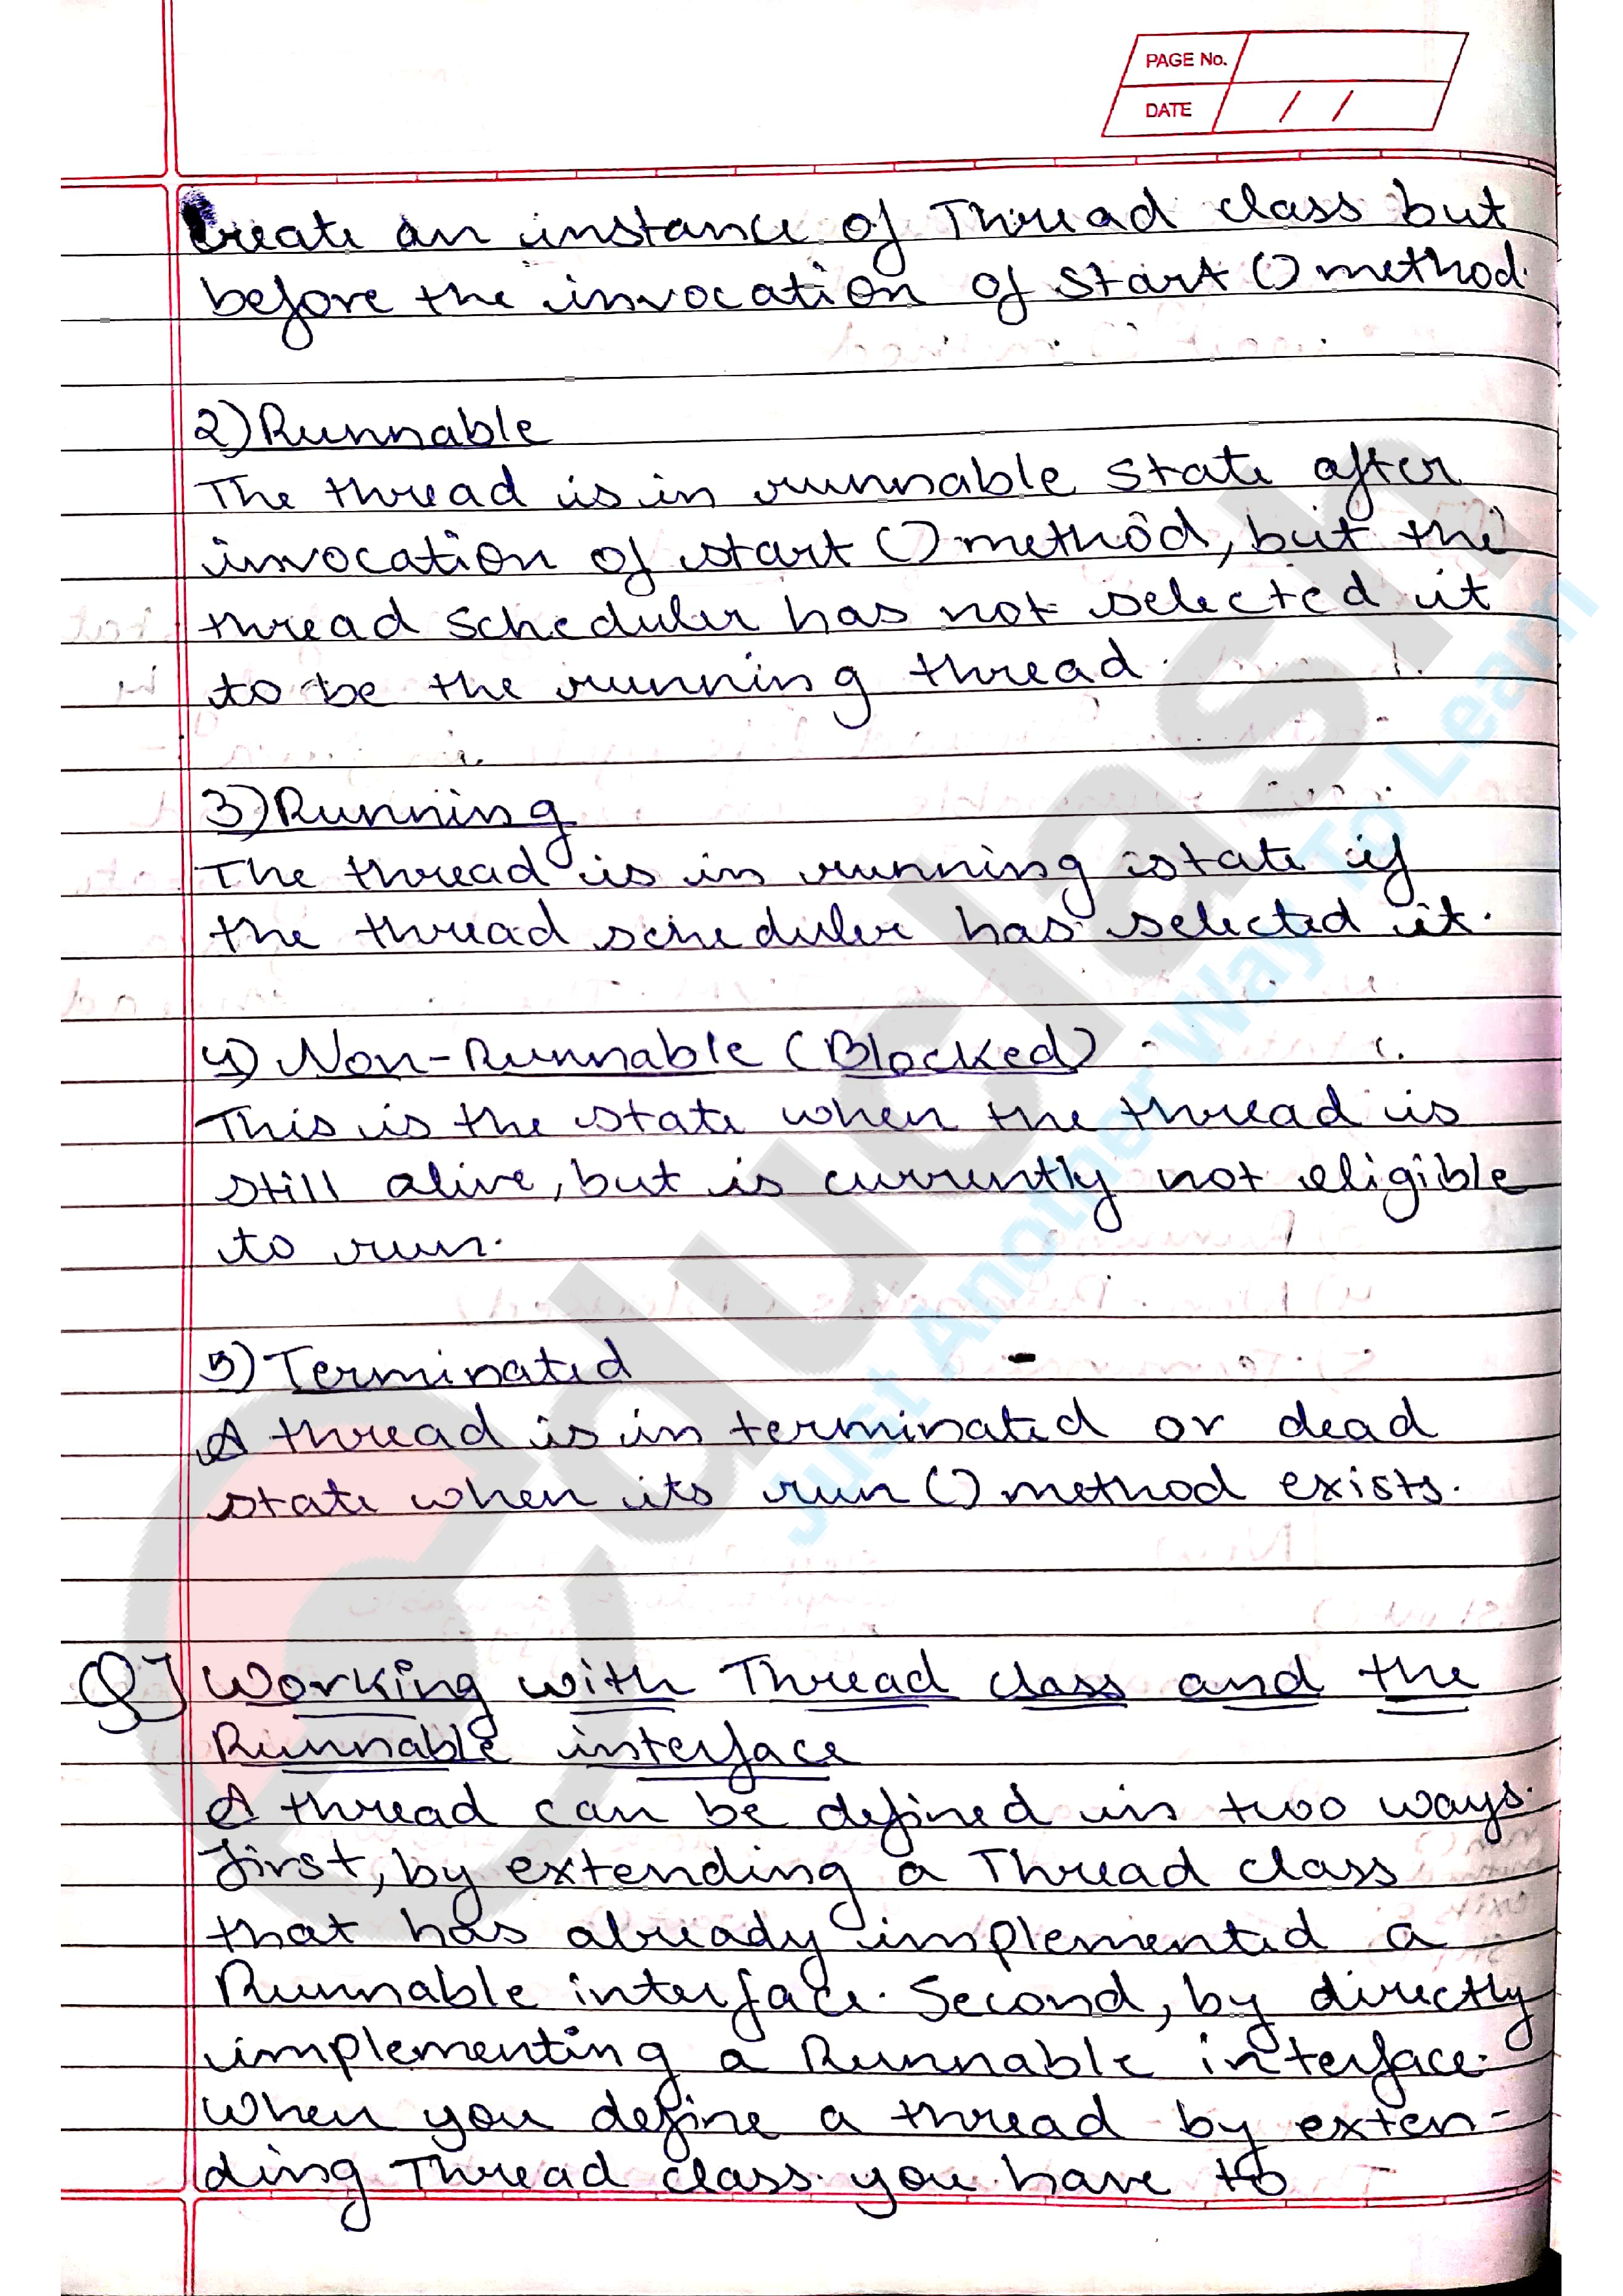 PAGE No.
DATE / /
Create an instance of Thread class but
before the invocation of start () method.
2) Runnable
The thread is in runnable state after
invocation of start () method, but the
thread scheduler has not selected it
to be the running thread.
3) Running
The thread is in running state if
the thread scheduler has selected it.
4) Non-Runnable (Blocked)
This is the state when the thread is
still alive, but is currently not eligible
to run.
5) Terminated
A thread is in terminated or dead
state when its run () method exists.
Q] Working with Thread class and the
Runnable interface
A thread can be defined in two ways.
First, by extending a Thread class
that has already implemented a
Runnable interface. Second, by directly
implementing a Runnable interface.
When you define a thread by exten-
ding Thread class you have to
educlash
Just Another Way To Learn